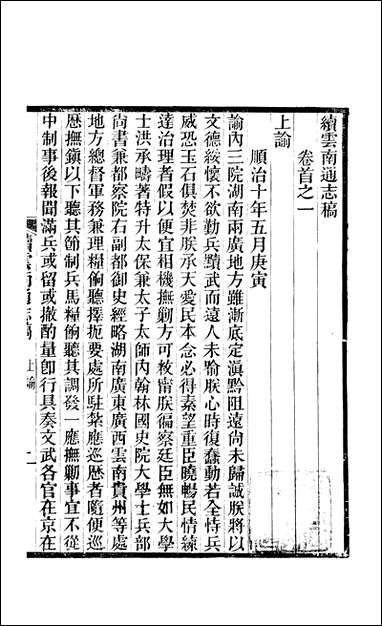 續雲南通志稿
卷首之一
上諭
順治十年五月庚寅
諭內三院湖南兩廣地方雖漸底定滇黔阻遠尚未歸誠朕將以
文德綏懷不欲勤兵黷武而遠人未喻朕心時復蠢動若全恃兵
威恐玉石俱焚非朕承天愛民本念必得素望重臣曉暢民情練
達治理者假以便宜相機撫勦方可敉甯朕徧察廷臣無如大學
士洪承疇著特升太保兼太子太師內翰林國史院大學士兵部
尚書兼都察院右副都御史經略湖南廣東廣西雲南貴州等處
地方總督軍務兼理糧餉聽擇扼要處所駐紮應巡歷者隨便巡
歷撫鎮以下聽其節制兵馬糧餉聽其調發一應撫勦事宜不從
中制事後報聞滿兵或留或撤酌量卽行具奏文武各官在京在
續雲南通志稿 上諭 一